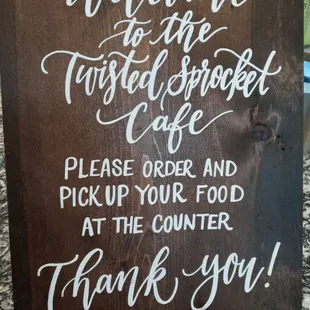 Welcome
to the
Twisted Sprocket
Cafe
PLEASE ORDER AND
PICKUP YOUR FOOD
AT THE COUNTER
Thank you!